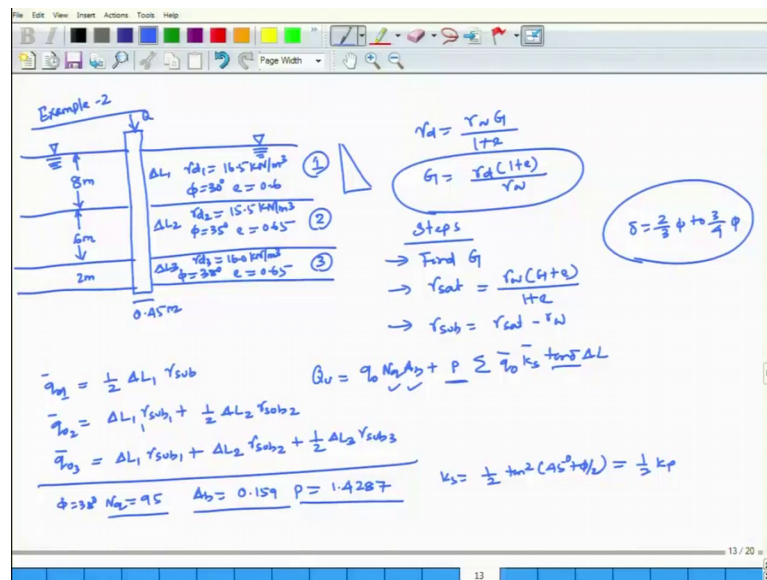 File Edit View Insert Actions Tools Help
Page Width
Example-2
Q
8m
ΔL₁ γd₁ = 16.5 kN/m³
φ=30° e=0.6
①
6m
ΔL2 γd₂ = 15.5 kN/m³
φ=35° e=0.65
②
2m
ΔL3 γd₃ = 16.0 kN/m³
φ=38° e=0.65
③
0.45m
γd = γw G / 1+e
G = γd(1+e) / γw
δ = 2/3 φ to 3/4 φ
Steps
→ Find G
→ γsat = γw(G+e) / 1+e
→ γsub = γsat - γw
q̄o1 = 1/2 ΔL₁ γsub
q̄o2 = ΔL₁ γsub₁ + 1/2 ΔL2 γsub2
q̄o3 = ΔL₁ γsub₁ + ΔL2 γsub2 + 1/2 ΔL3 γsub3
Qu = qo Nq Ab + P Σ q̄o k̄s tanδ ΔL
φ=38° Nq=95 Ab = 0.159 P = 1.4287
Ks = 1/2 tan²(45°+φ/2) = 1/2 Kp
13 / 20
13